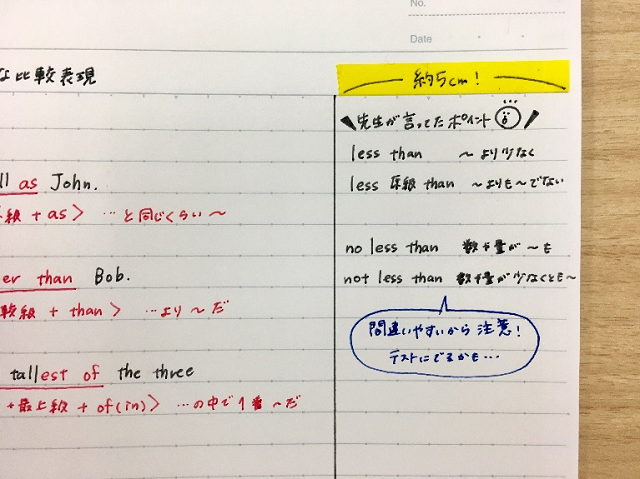 No.
Date
な比較表現
ll as John.
級 + as> …と同じくらい〜
er than Bob.
較級 + than> …より〜だ
tallest of the three
+最上級 + of(in)> …の中で1番〜だ
約5cm!
先生が言ってたポイント
less than 〜より少なく
less 原級 than 〜よりも〜でない
no less than 数や量が〜も
not less than 数や量が少なくとも〜
間違いやすいから注意!
テストにでるかも…